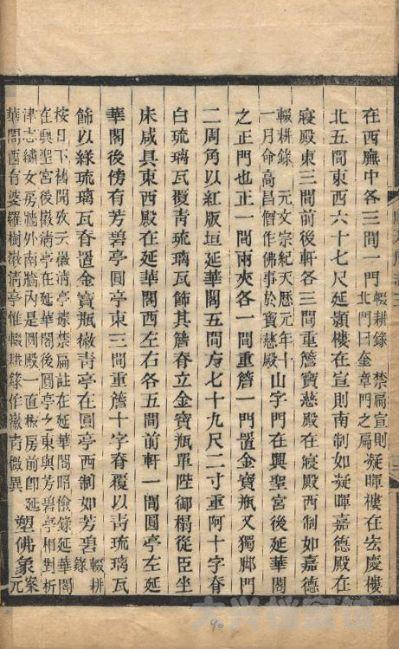 在西廡中各三間一門輟耕錄 禁扁宣則
北門曰奎章門之扁凝暉樓在宏慶樓
北五間東西六十七尺延顥樓在宣則南制如凝暉嘉德殿在
寢殿東三間前後軒各三間重簷寶慈殿在寢殿西制如嘉德
輟耕錄 元文宗紀天歷元年十
一月命高昌僧作佛事於寶慈殿山字門在興聖宮後延華閣
之正門也正一間兩夾各一間重簷一門置金寶瓶又獨腳門
二周角以紅版垣延華閣五間方七十九尺二寸重阿十字脊
白琉璃瓦覆青琉璃瓦飾其簷脊立金寶瓶單陛御榻從臣坐
床咸具東西殿在延華閣西左右各五間前軒一間圓亭在延
華閣後傍有芳碧亭圓亭東三間重簷十字脊覆以青琉璃瓦
飾以綠琉璃瓦脊置金寶瓶徽青亭在圓亭西制如芳碧輟耕
錄
按日下舊聞攷云徽清亭據禁扁註在延華閣昭儉錄延華閣
在興聖宮後徽清亭在延華閣後圓亭之東與芳碧亭相對析
津志繡女房牆外南牆內是園殿一直板房前即延
華閣西有婆羅樹徽清亭惟輟耕錄作徽青微異塑佛象案
元
90